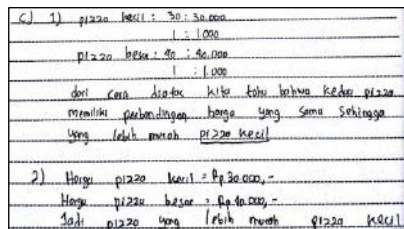 c) 1) pizza kecil : 30 : 30.000
1 : 1000
pizza besar : 40 : 40.000
1 : 1.000
dari cara diatas kita tahu bahwa kedua pizza
memiliki perbandingan harga yang sama sehingga
yang lebih murah pizza kecil
2) Harga pizza kecil = Rp 30.000,-
Harga pizza besar = Rp 40.000,-
Jadi pizza yang lebih murah pizza kecil